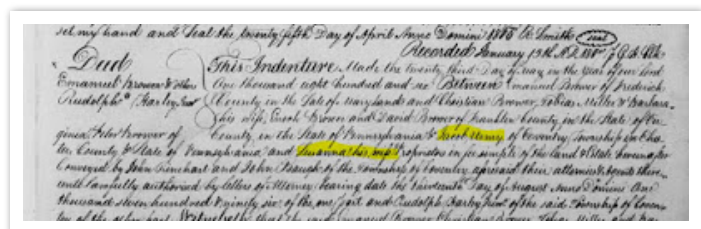 set my hand and Seal the twenty fifth Day of April Anno Domini 1806 R Smith Seal
Recorded January 15th A.D. 180
Deed
Emanuel Brower & others
Rudolph Harley Junr
This Indenture Made the twenty third Day of May in the Year of our Lord
One thousand eight hundred and six Between Emanuel Brower of Frederick
County in the State of Maryland and Christian Brower, Tobias Miller & Barbara
his wife, Enoch Brown and David Brower of Franklin County in the State of Vir-
ginea, John Brower of County, in the State of Pennsylvania & of Coventry Township in Che-
ter County & State of Pennsylvania and Susanna his wife proprietors in fee simple of the land & Estate hereinafter
Conveyed by John Rinehart and John Baugh of the Township of Coventry aforesaid their attornies & Agents there-
unto lawfully authorized by letters of Attorney bearing date the thirteenth Day of August Anno Domini One
thousand seven hundred & ninety six of the one part and Rudolph Harley Junr of the said Township of Coven-
try of the other part Witnesseth that the said Emanuel Brower Christian Brower Tobias Miller and Bar